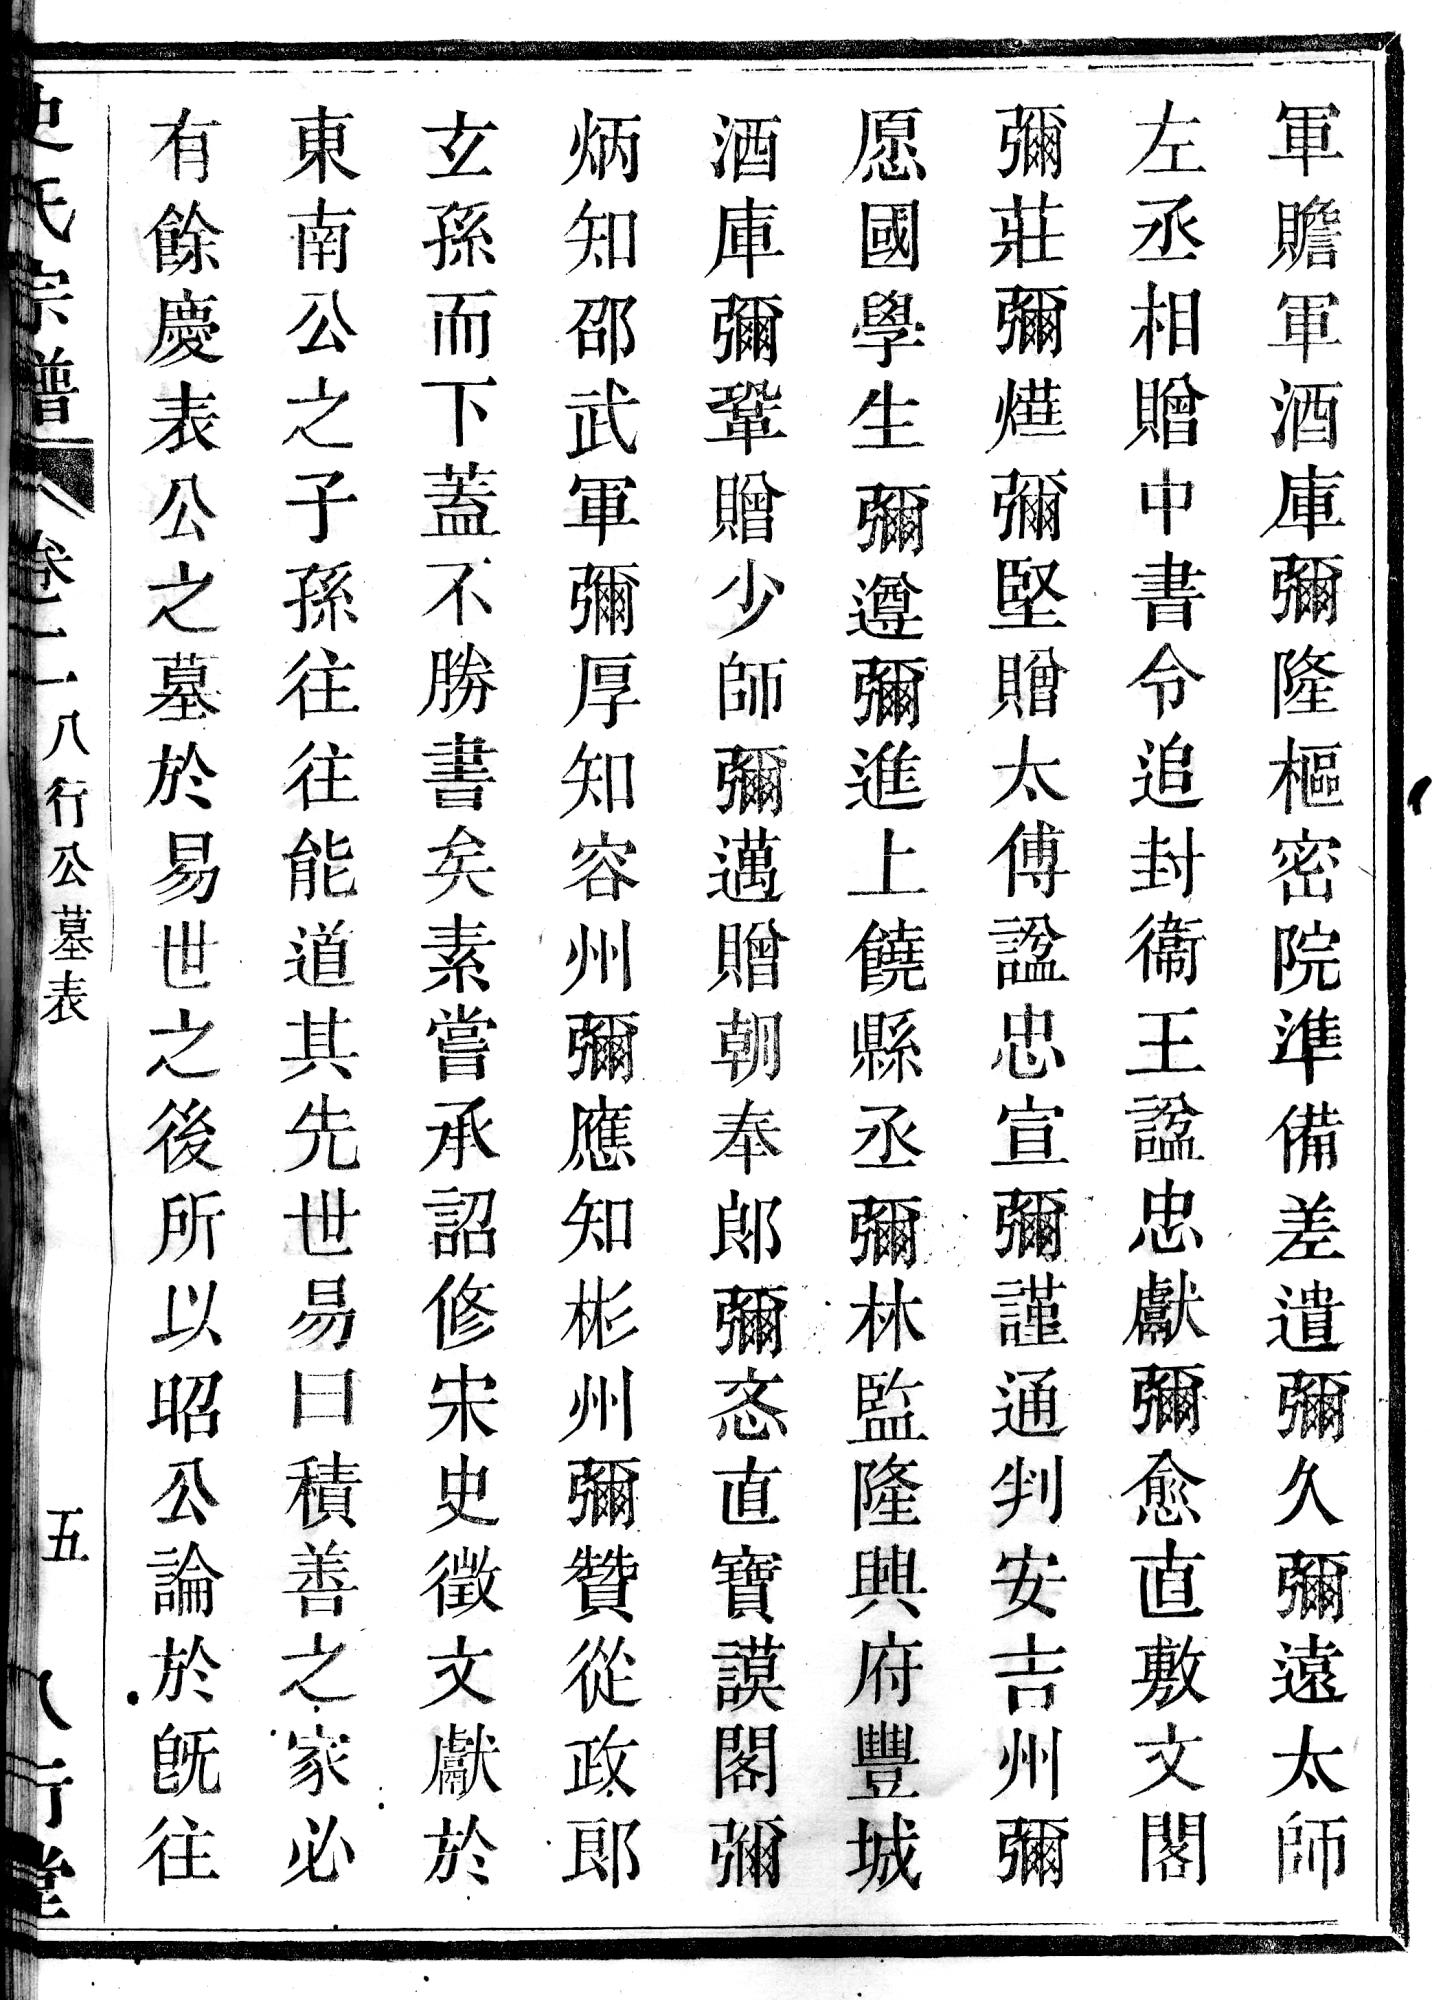 軍贍軍酒庫彌隆樞密院準備差遣彌久彌遠太師
左丞相贈中書令追封衞王諡忠獻彌愈直敷文閣
彌莊彌㷸彌堅贈太傅諡忠宣彌謹通判安吉州彌
愿國學生彌遵彌進上饒縣丞彌林監隆興府豐城
酒庫彌鞏贈少師彌邁贈朝奉郎彌忞直寶謨閣彌
炳知邵武軍彌厚知容州彌應知彬州彌贊從政郎
玄孫而下蓋不勝書矣素嘗承詔修宋史徵文獻於
東南公之子孫往往能道其先世易曰積善之家必
有餘慶表公之墓於易世之後所以昭公論於旣往
史氏宗譜 卷二 八行公墓表 五 八行堂